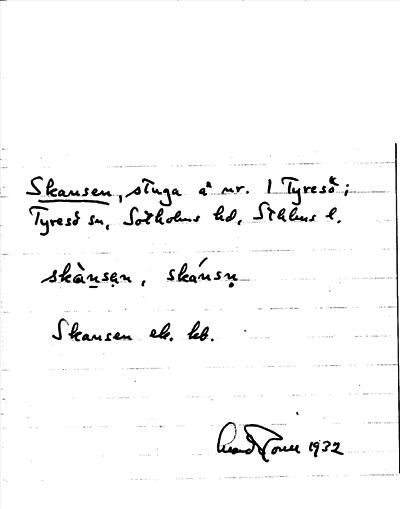 Skansen, stuga å nr. 1 Tyresö;
Tyresö sn, Sotholms hd, Sthlms l.
skànsan, skánsn̥
Skansen ek. kb.
1932